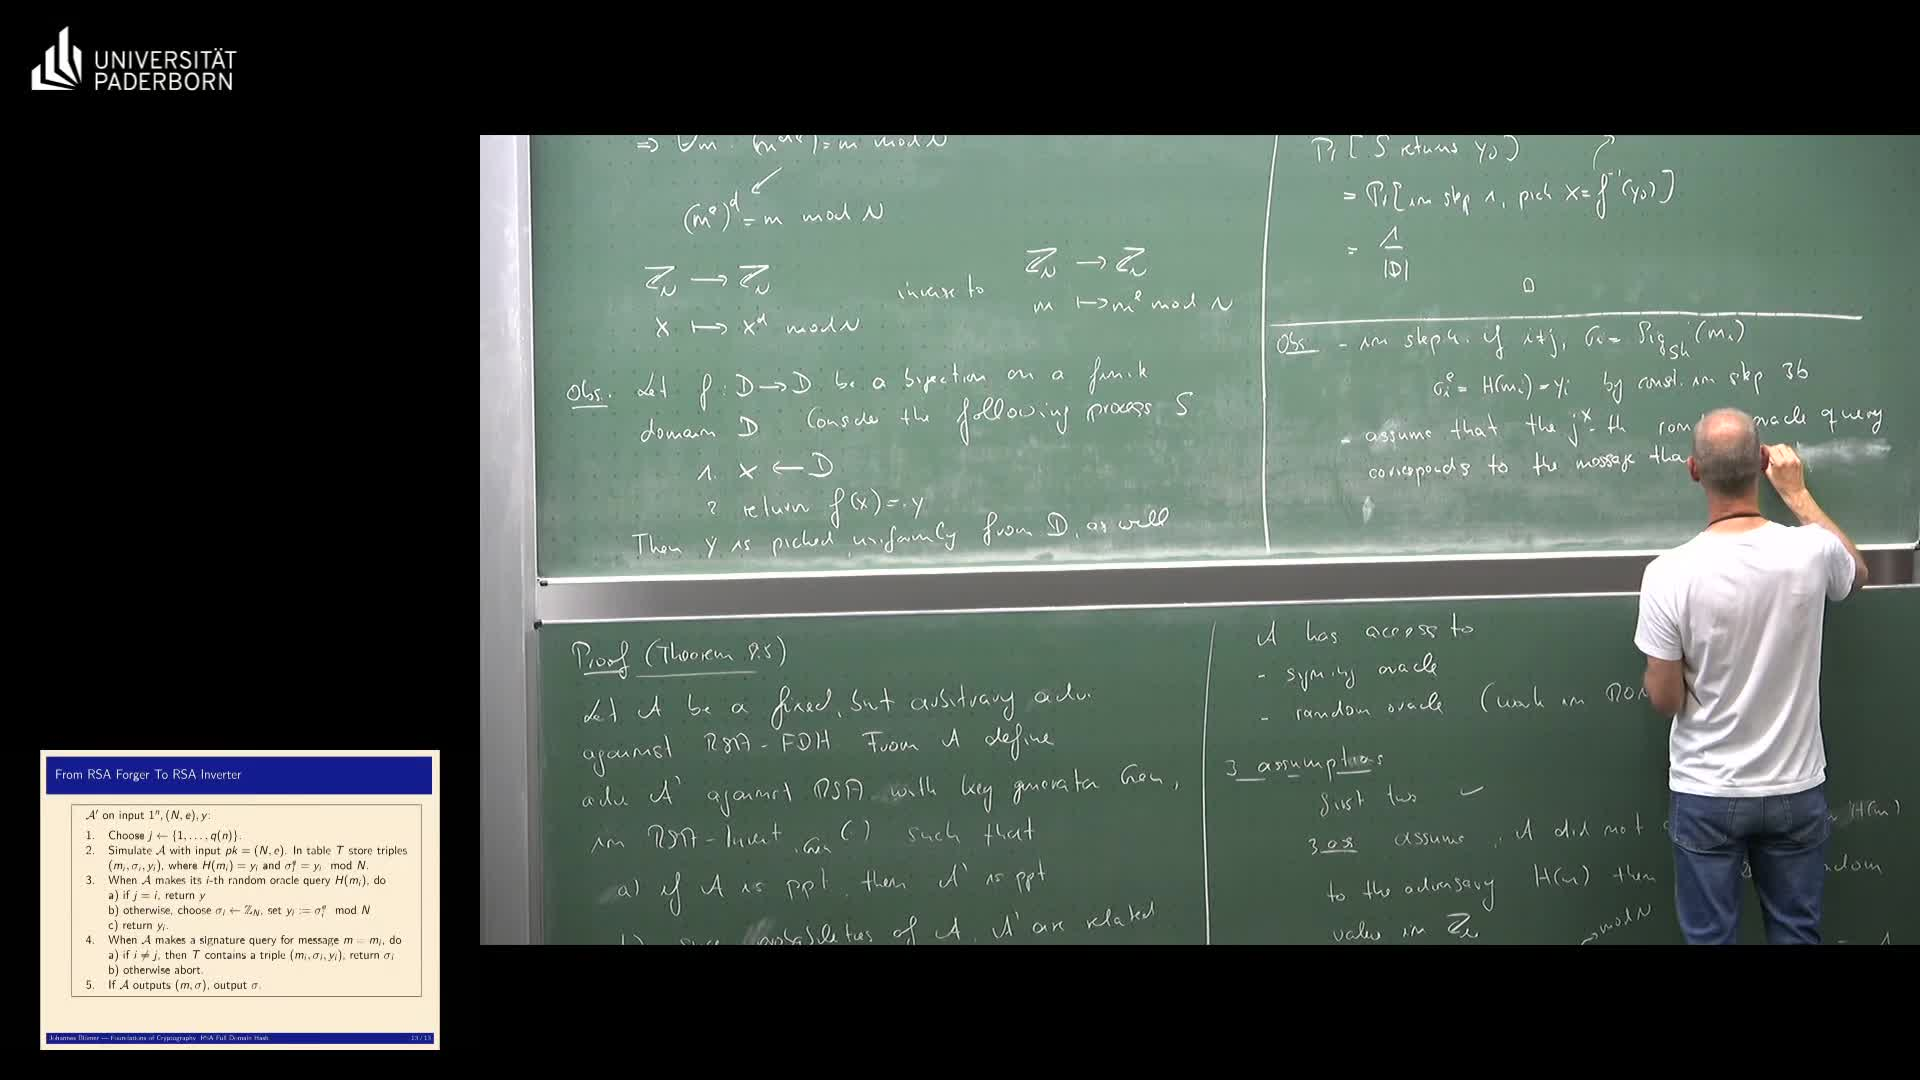 UNIVERSITÄT
PADERBORN
(mᵉ)ᵈ = m mod N
ℤ_N → ℤ_N
x ↦ xᵈ mod N
inverse to
ℤ_N → ℤ_N
m ↦ mᵉ mod N
Obs. Let f: D → D be a bijection on a finite
domain D Consider the following process S
1. x ← D
2 return f(x) =: y
Then y is picked uniformly from D, as well
Pr[S returns y₀]
= Pr[in step 1, pick x = f⁻¹(y₀)]
= 1
|D|
□
Obs - in step 4. if i≠j, σᵢ = Sig_sk(mᵢ)
σᵢᵉ = H(mᵢ) = yᵢ by const. in step 3b
- assume that the j*-th oracle query
corresponds to the message
Proof (Theorem 8.5)
Let A be a fixed, but arbitrary adv.
against RSA-FDH From A define
adv A' against RSA with key generator Gen,
in RSA-Invert ,Gen ( ) such that
a) if A is ppt, then A' is ppt
probabilities of A, A' are related
A has access to
- signing oracle
- random oracle (work in
3 assumptions
first two ✓
3as assume, A did not H(m)
to the adversary H(m) then
value in ℤ_N
mod N
From RSA Forger To RSA Inverter
A′ on input 1ⁿ, (N, e), y:
1. Choose j ← {1, . . . , q(n)}.
2. Simulate A with input pk = (N, e). In table T store triples
(mᵢ, σᵢ, yᵢ), where H(mᵢ) = yᵢ and σᵢᵉ = yᵢ mod N.
3. When A makes its i-th random oracle query H(mᵢ), do
a) if j = i, return y
b) otherwise, choose σᵢ ← ℤ_N, set yᵢ := σᵢᵉ mod N
c) return yᵢ.
4. When A makes a signature query for message m = mᵢ, do
a) if i ≠ j, then T contains a triple (mᵢ, σᵢ, yᵢ), return σᵢ
b) otherwise abort.
5. If A outputs (m, σ), output σ.
Johannes Blömer — Foundations of Cryptography RSA Full Domain Hash 13 / 13